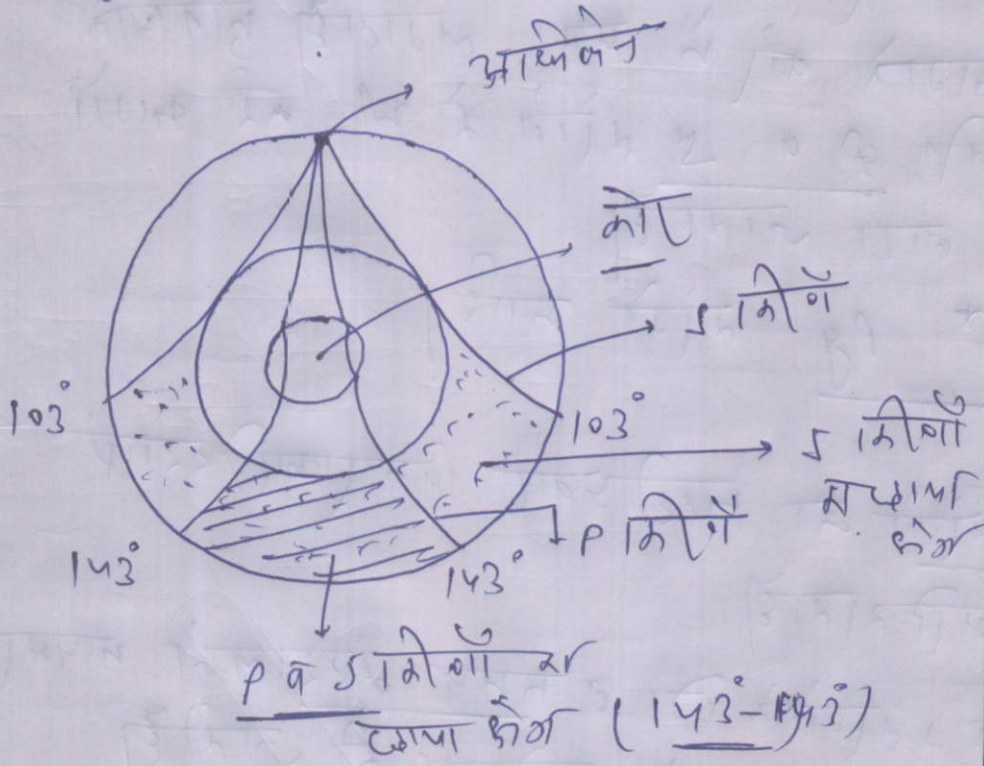 अधिकेन्द्र
कोर
S किरणें
103°
103°
S किरणों
का छाया
क्षेत्र
P किरणें
143°
143°
P व S किरणों का
छाया क्षेत्र (143°-143°)